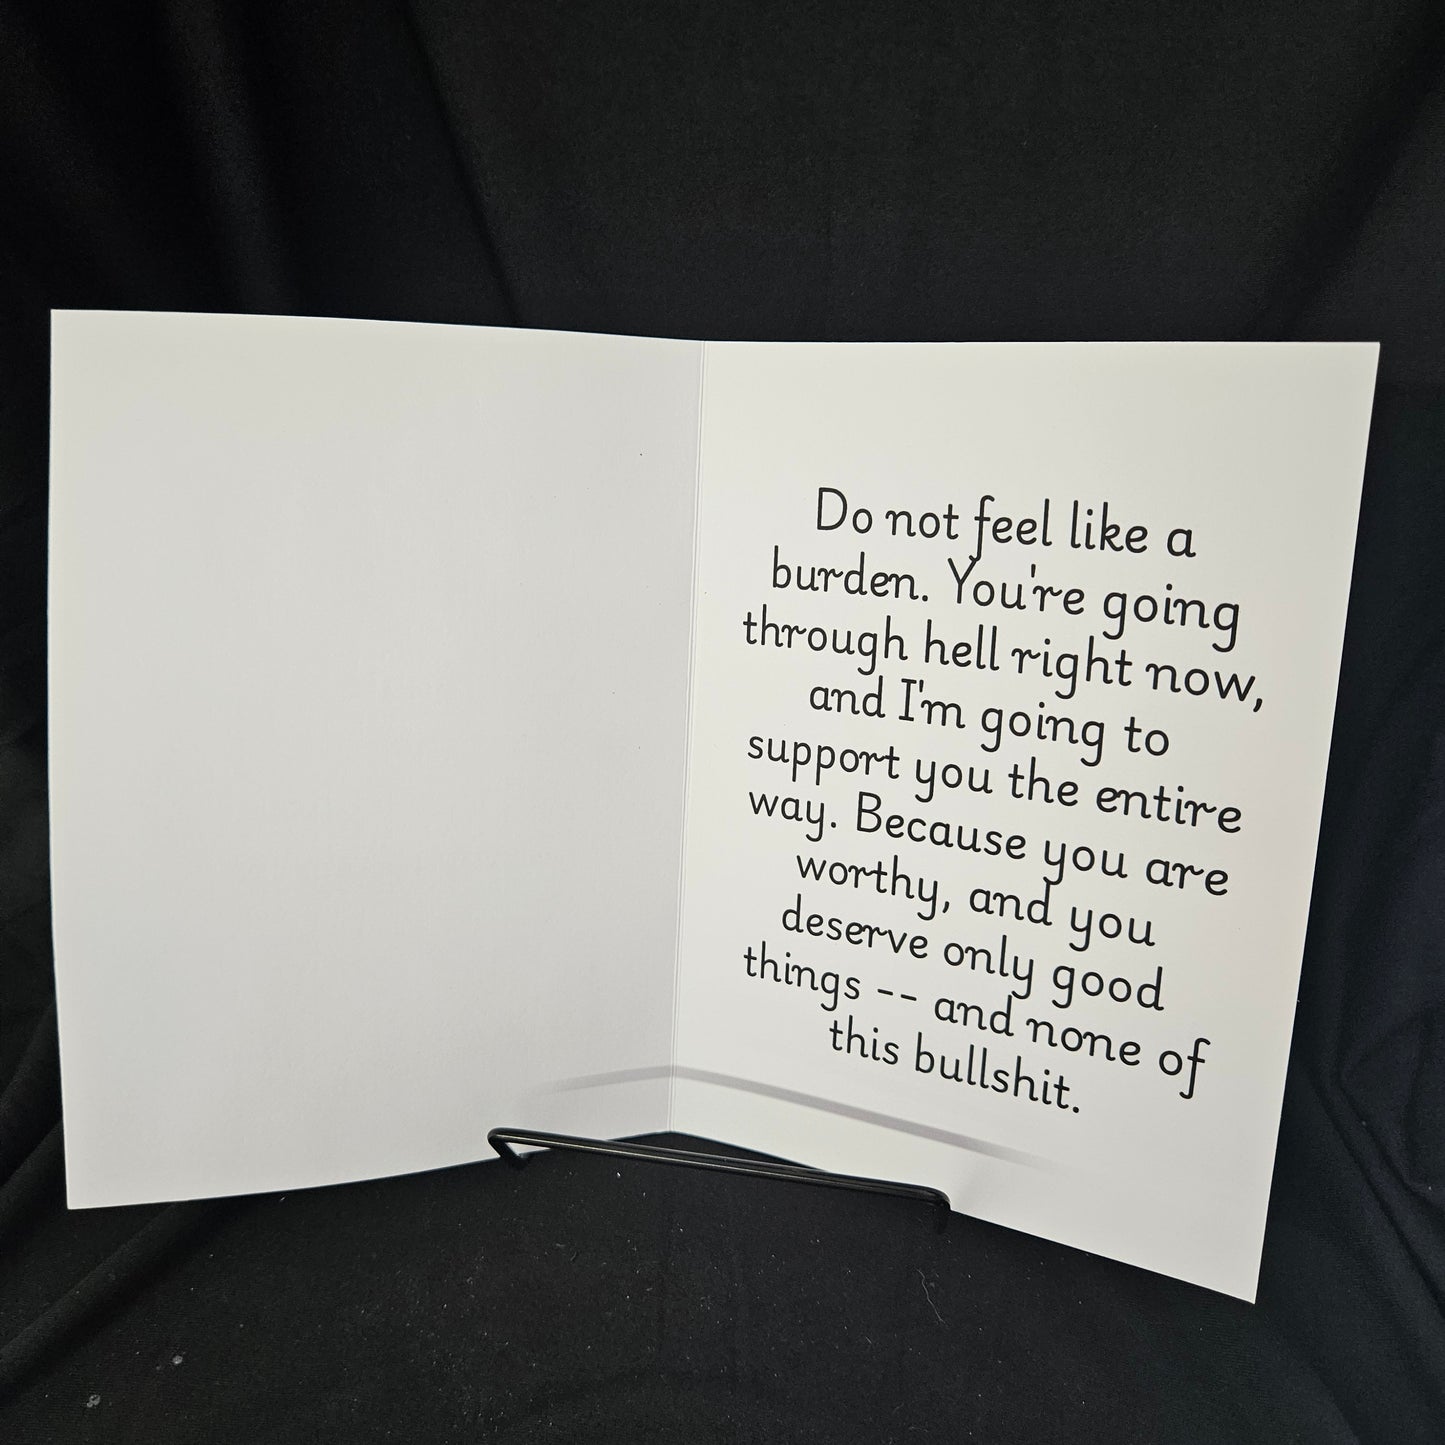 Do not feel like a
burden. You're going
through hell right now,
and I'm going to
support you the entire
way. Because you are
worthy, and you
deserve only good
things -- and none of
this bullshit.